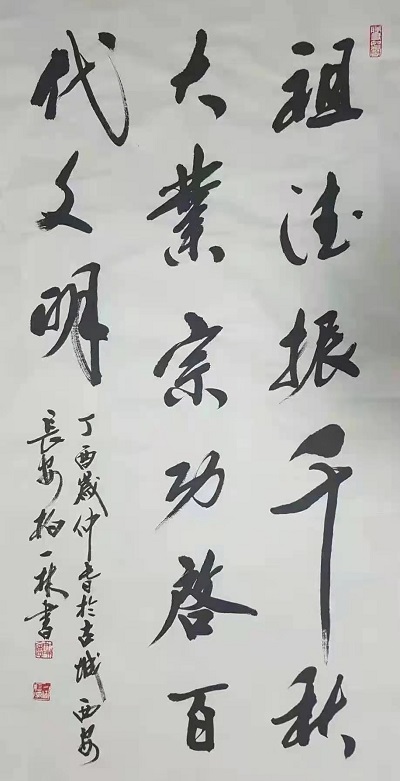 祖德振千秋
大業宗功啓百
代文明
丁酉歲仲春於古城西安
長安柏一林書